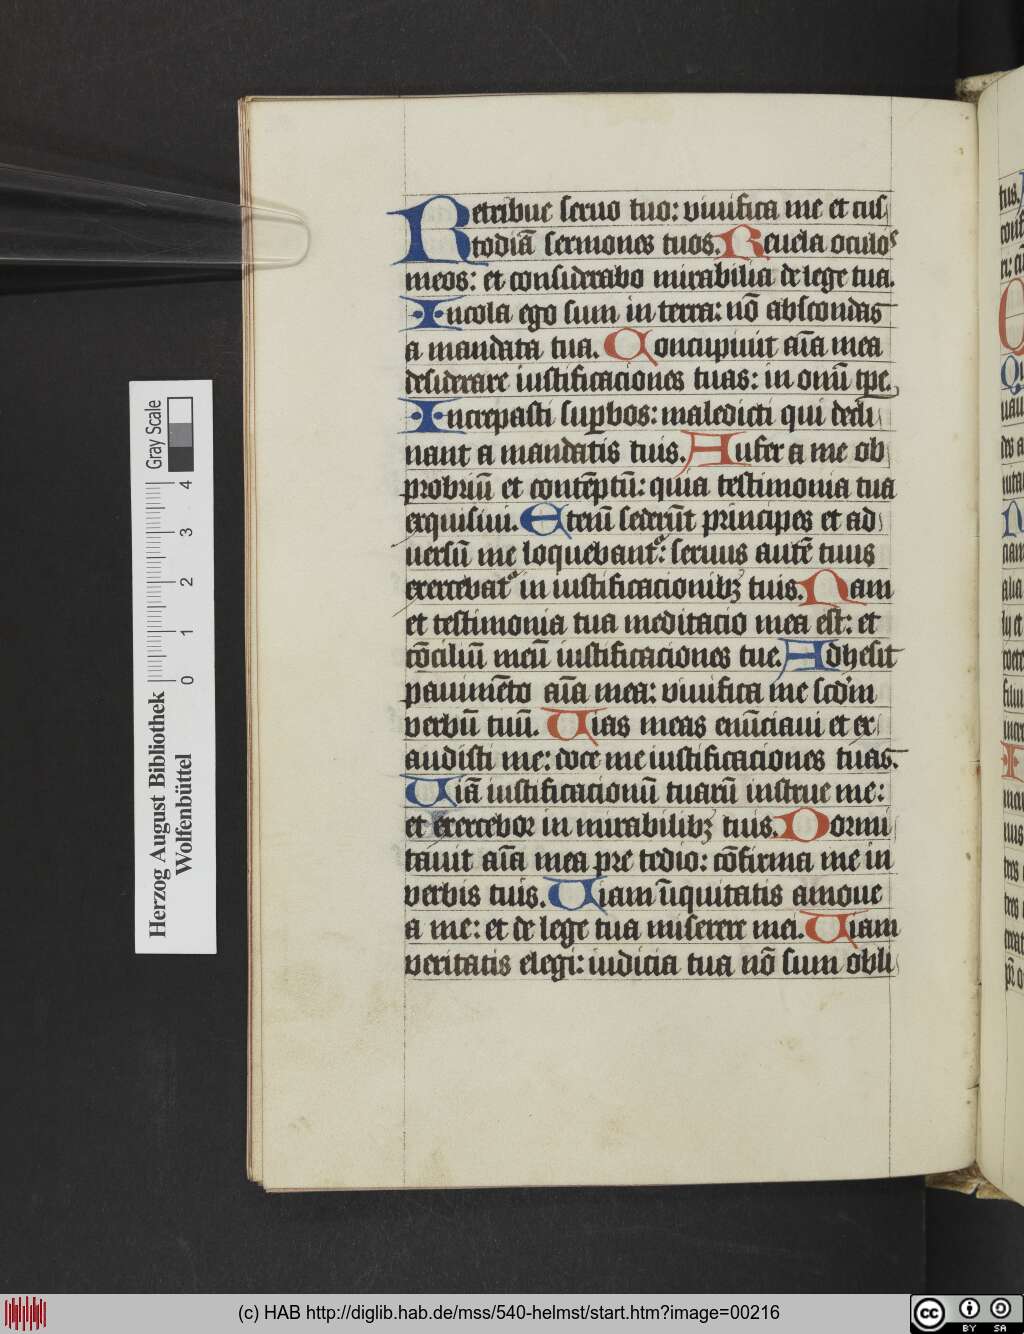 Retribue seruo tuo: viuifica me et cus
todiā sermones tuos. Reuela oculos
meos: et considerabo mirabilia de lege tua.
Incola ego sum in terra: nō abscondas
a mandata tua. Concupiuit aīa mea
desiderare iustificaciones tuas: in omī tpe.
Increpasti supbos: maledicti qui decli
nant a mandatis tuis. Aufer a me ob
probriū et contēptū: quia testimonia tua
exquisiui. Etenī sederūt principes et ad
uersū me loquebant: seruus autē tuus
exercebat in iustificacionibꝫ tuis. Nam
et testimonia tua meditacio mea est: et
cōciliū meū iustificaciones tue. Adhesit
pauimēto aīa mea: viuifica me scdm
verbū tuū. Uias meas enūciaui et ex
audisti me: doce me iustificaciones tuas.
Uiā iustificacionū tuarū instrue me:
et exercebor in mirabilibꝫ tuis. Dormi
tauit aīa mea pre tedio: cōfirma me in
verbis tuis. Uiam īiquitatis amoue
a me: et de lege tua miserere mei. Uiam
veritatis elegi: iudicia tua nō sum obli
tus.
Herzog August Bibliothek
Wolfenbüttel
0 1 2 3 4
Gray Scale
(c) HAB http://diglib.hab.de/mss/540-helmst/start.htm?image=00216
cc BY SA